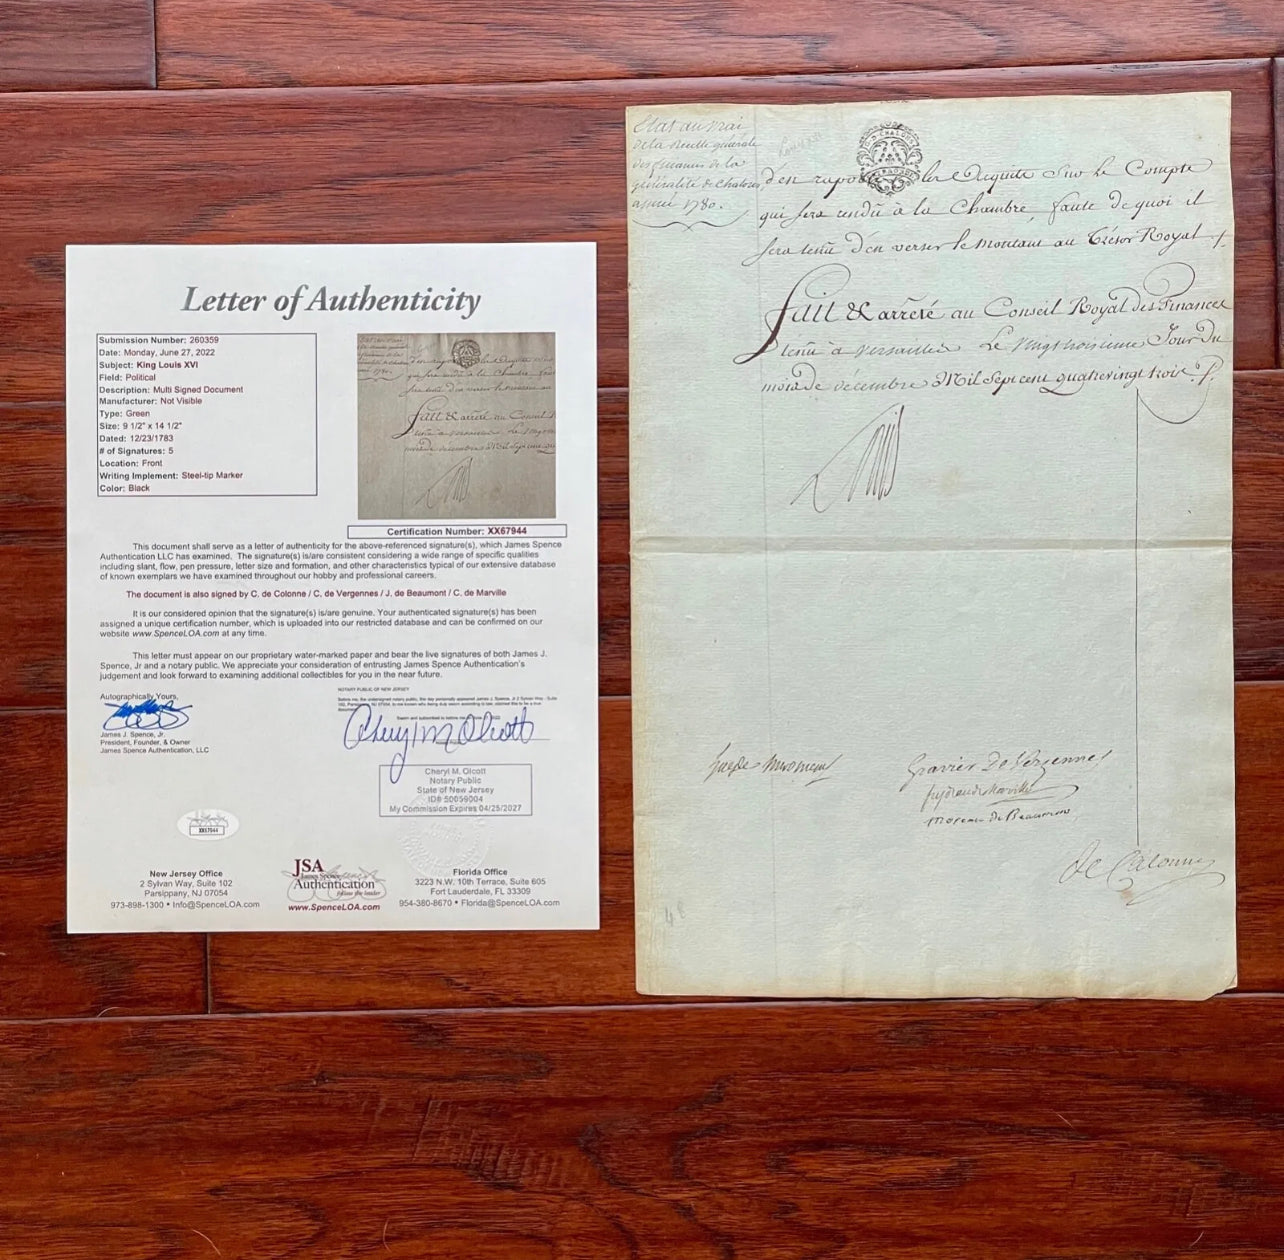 Letter of Authenticity
Submission Number: 260359
Date: Monday, June 27, 2022
Subject: King Louis XVI
Field: Political
Description: Multi Signed Document
Manufacturer: Not Visible
Type: Green
Size: 9 1/2" x 14 1/2"
Dated: 12/23/1783
# of Signatures: 5
Location: Front
Writing Implement: Steel-tip Marker
Color: Black
Certification Number: XX67944
This document shall serve as a letter of authenticity for the above-referenced signature(s), which James Spence
Authentication LLC has examined. The signature(s) is/are consistent considering a wide range of specific qualities
including slant, flow, pen pressure, letter size and formation, and other characteristics typical of our extensive database
of known exemplars we have examined throughout our hobby and professional careers.
The document is also signed by C. de Colonne / C. de Vergennes / J. de Beaumont / C. de Marville
It is our considered opinion that the signature(s) is/are genuine. Your authenticated signature(s) has been
assigned a unique certification number, which is uploaded into our restricted database and can be confirmed on our
website www.SpenceLOA.com at any time.
This letter must appear on our proprietary water-marked paper and bear the live signatures of both James J.
Spence, Jr and a notary public. We appreciate your consideration of entrusting James Spence Authentication's
judgement and look forward to examining additional collectibles for you in the near future.
Autographically Yours,
James J. Spence, Jr.
President, Founder, & Owner
James Spence Authentication, LLC
NOTARY PUBLIC OF NEW JERSEY
Cheryl M Olcott
Cheryl M. Olcott
Notary Public
State of New Jersey
ID# 50059004
My Commission Expires 04/25/2027
XX67944
New Jersey Office
2 Sylvan Way, Suite 102
Parsippany, NJ 07054
973-898-1300 • Info@SpenceLOA.com
JSA
James Spence
Authentication
follow the leader
www.SpenceLOA.com
Florida Office
3223 N.W. 10th Terrace, Suite 605
Fort Lauderdale, FL 33309
954-380-8670 • Florida@SpenceLOA.com
Etat au vrai
de la Recette générale
des finances de la
généralité de chalons,
année 1780.
d'en raporter les Acquits Sur le Compte
qui sera rendû à la Chambre, faute de quoi il
sera tenû d'en verser le montant au Trésor Royal
fait & arrêté au Conseil Royal des Finances
tenû à Versailles Le Vingt troisieme Jour du
mois de décembre Mil Sept cent quatrevingt trois
Gravier De Vergennes
Moreau de Beaumont
De Calonne
48